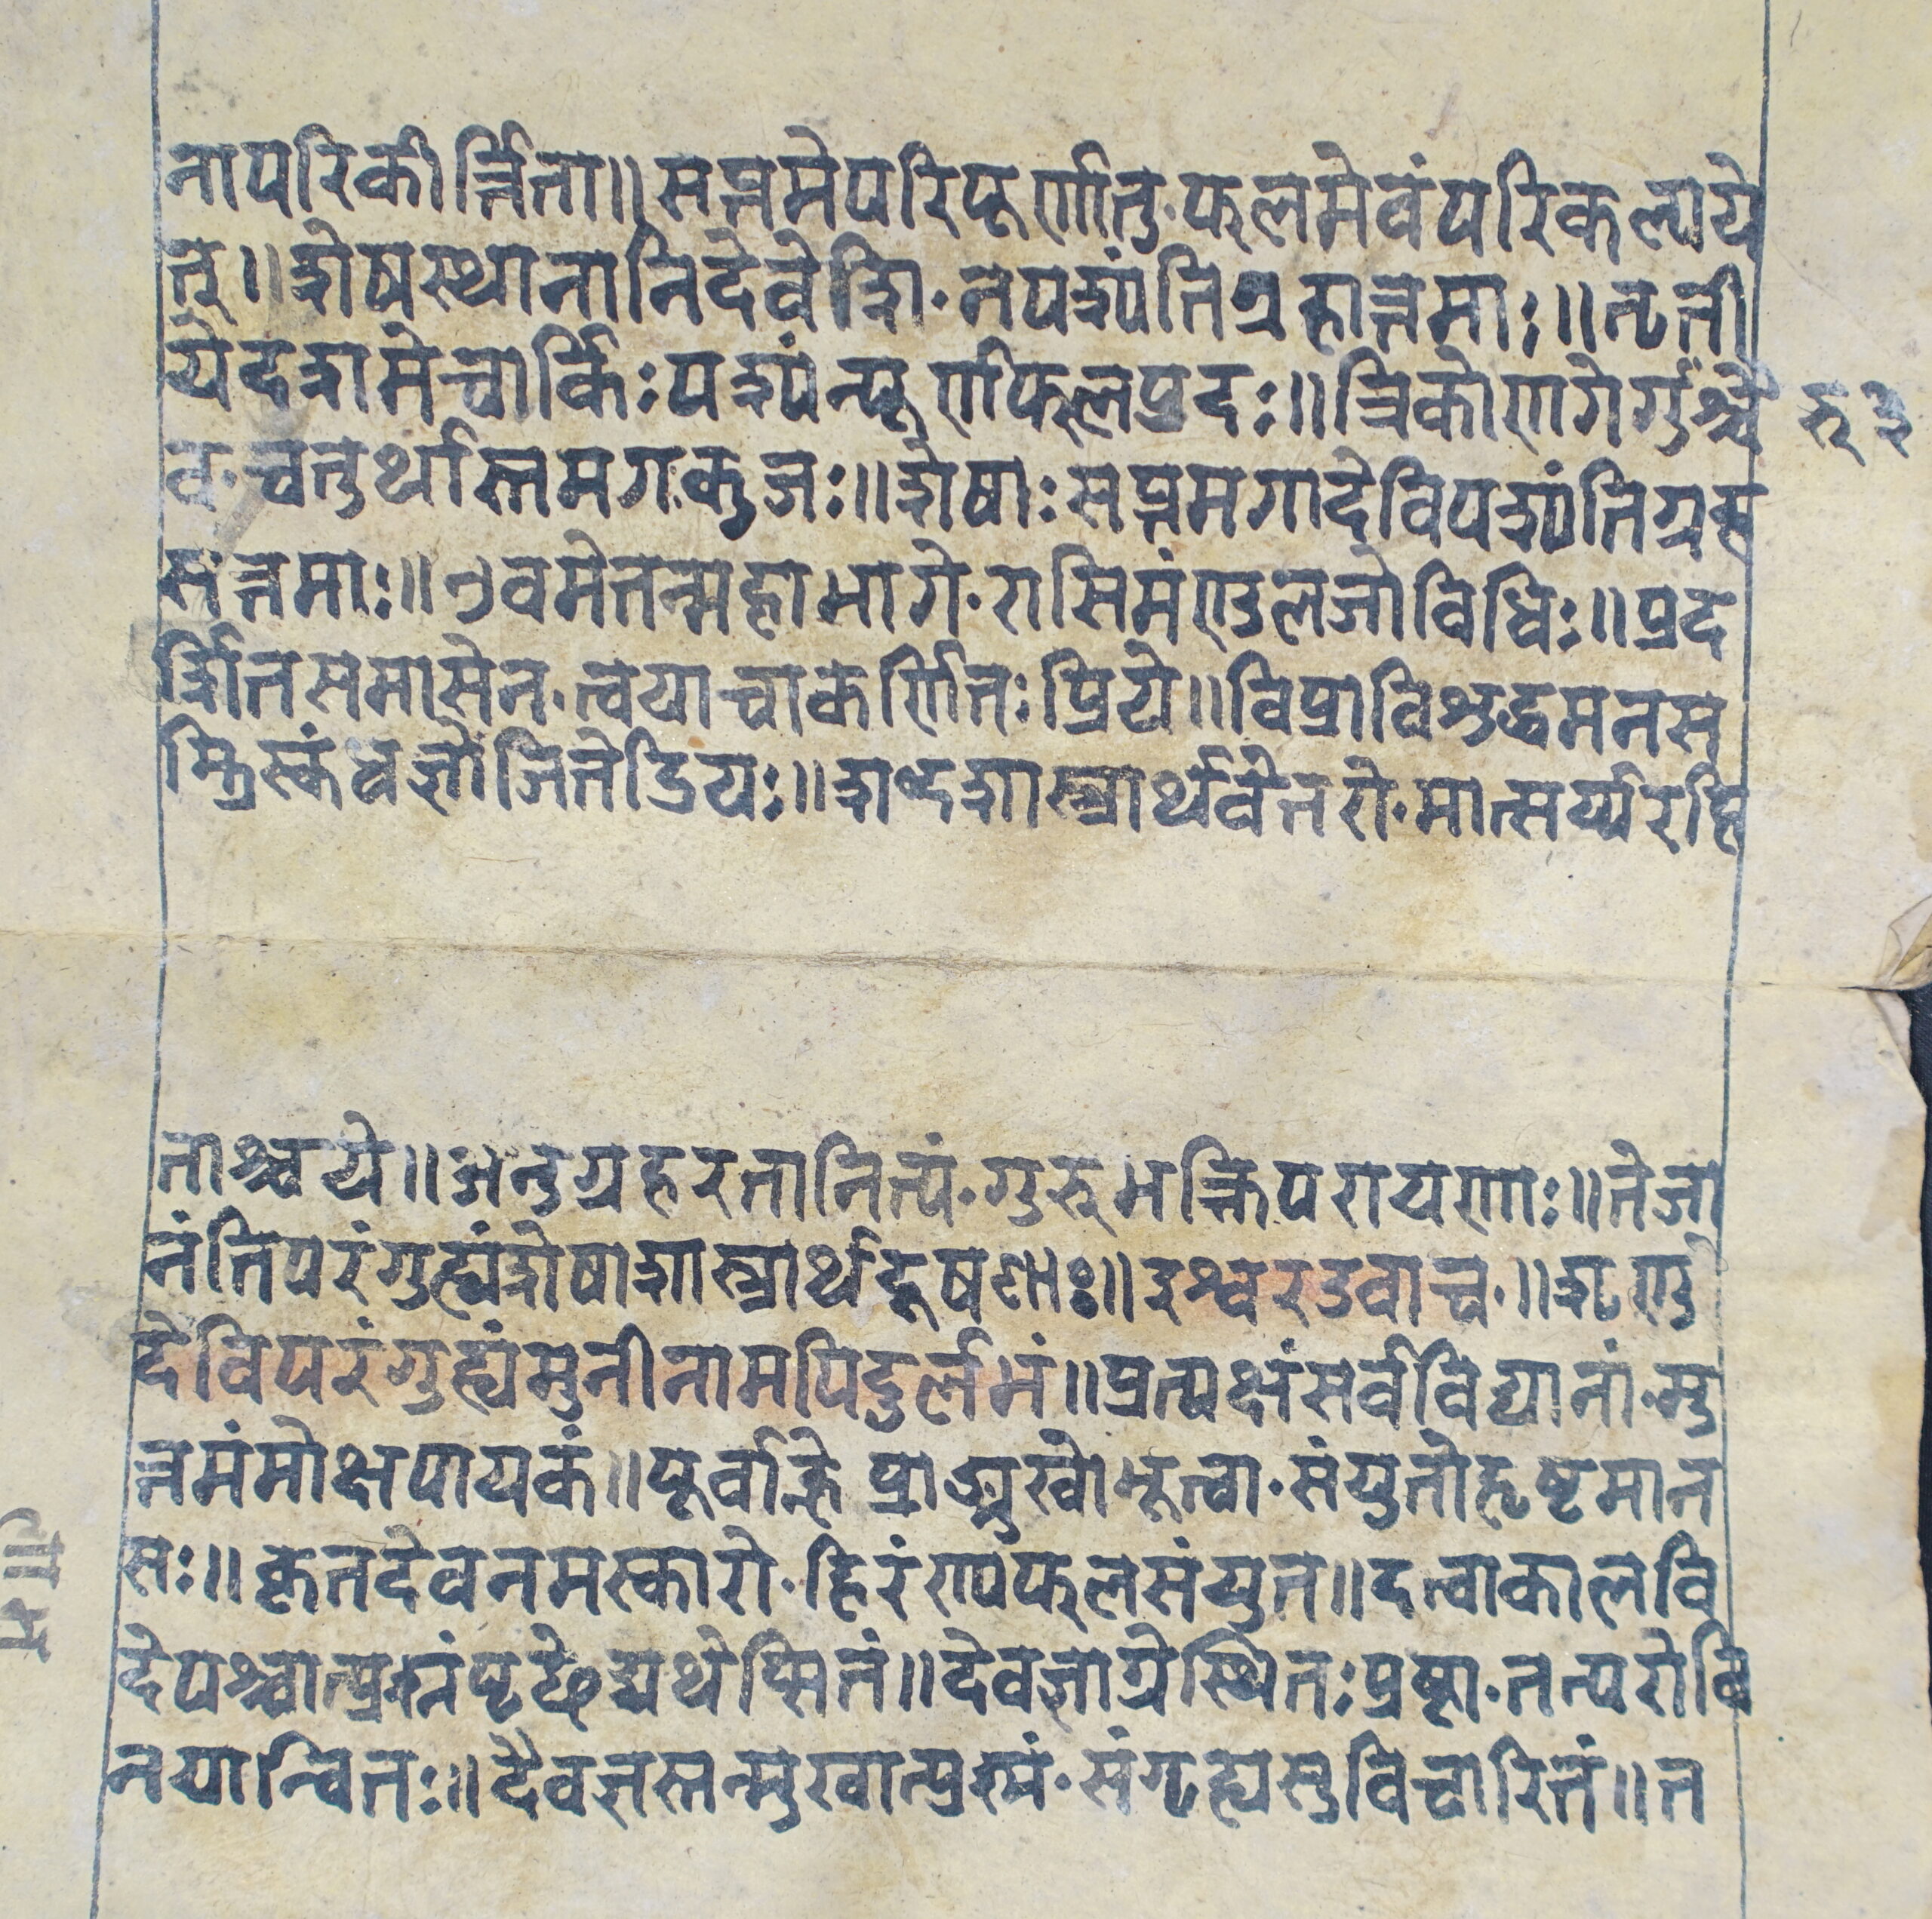 नापरिकीर्त्तिता॥सप्तमेपरिपूर्णातु·फलमेवंपरिकल्पये
त्॥शेषस्थानानिदेवेशि·नपश्यंतिग्रहात्तमाः॥तृती
येदशमेचार्किःपश्यंन्पूर्णफलप्रदः॥त्रिकोणगेर्गुश्चै रु३
व·चतुर्थास्तमगकुजः॥शेषाःसप्तमगादेविपश्यंतिग्रह
सत्तमाः॥एवमेतन्महाभागे·रासिमंण्डलजोविधिः॥प्रद
र्शितसमासेन·त्वयाचाकर्णितःप्रिये॥विप्राविशुद्धमनस
स्त्रिस्कंधज्ञोजितेद्रियः॥शब्दशास्त्रार्थवेतरो·मात्सर्य्यरहि
ताश्चये॥अनुग्रहरतानित्यं·गुरुभक्तिपरायणाः॥तेजा
नंतिपरंगुह्यंशेषाशास्त्रार्थदूषणाः॥इश्वरउवाच·॥शृणु
देविपरंगुह्यंमुनीनामपिदुर्लभं॥प्रत्यक्षंसर्वविद्यानां·मु
त्तमंमोक्षपायकं॥पूर्वाह्ने प्राङ्मुखोभूत्वा·संयुतोहृष्टमान
सः॥कृतदेवनमस्कारो·हिरंण्यंफलसंयुत॥दत्वाकालवि
देपश्चात्प्रश्नंपृछेद्यथेप्सितं॥देवज्ञाग्रेस्थितःप्रष्टा·तत्परोवि
नयान्वितः॥दैवज्ञस्तन्मुखात्प्रश्नं·संगृह्यसुविचारितं॥त